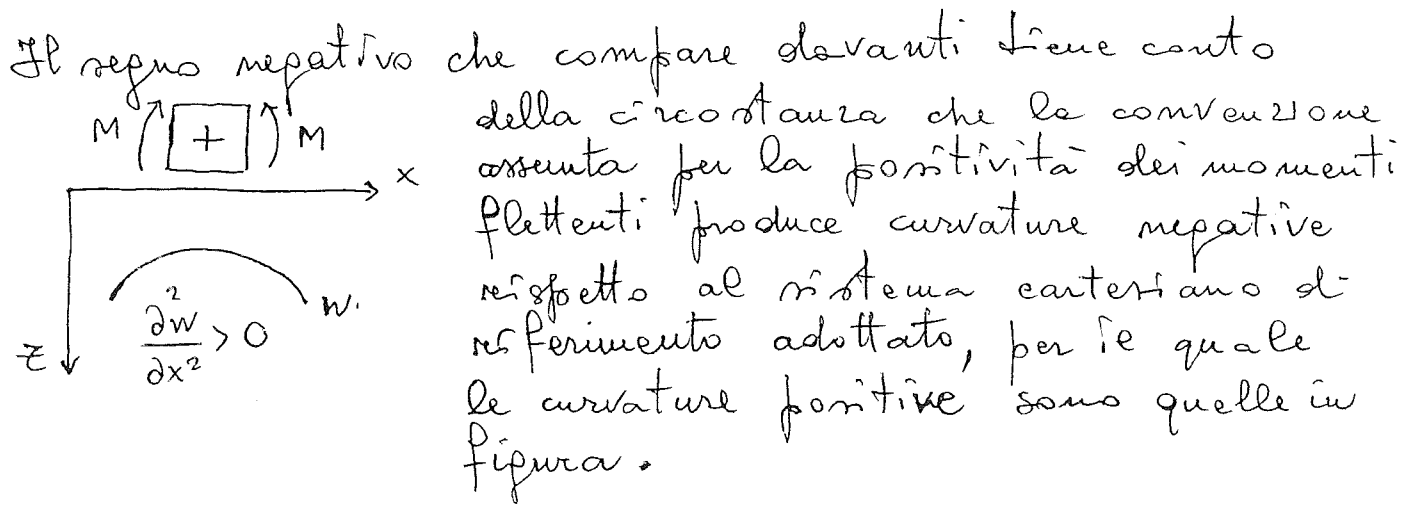 Il segno negativo che compare davanti tiene conto
della circostanza che la convenzione
assunta per la positività dei momenti
flettenti produce curvature negative
rispetto al sistema cartesiano di
riferimento adottato, per il quale
le curvature positive sono quelle in
figura.
M + M
x
w.
∂²w/∂x² > 0
z